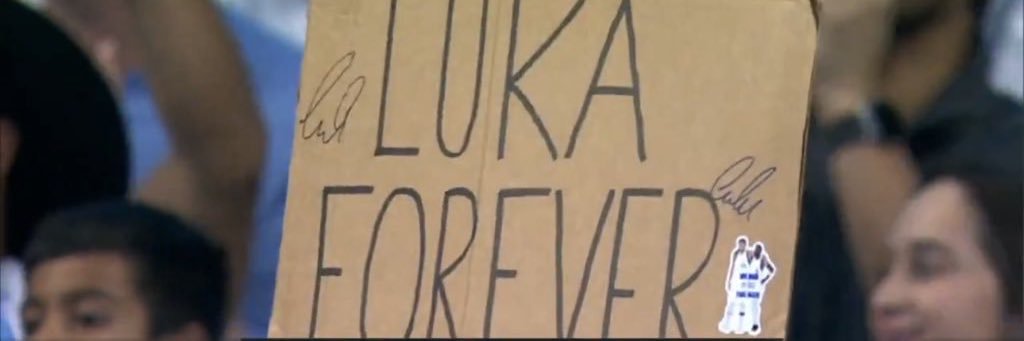 LUKA
FOREVER